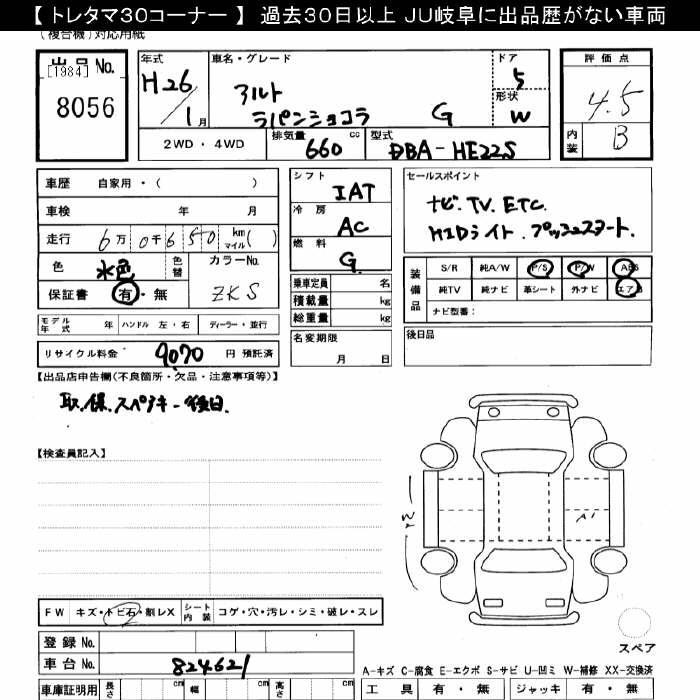 【トレタマ30コーナー】 過去30日以上 JU岐阜に出品歴がない車両
(複合機)対応用紙
出品No.
[1984]
8056
年式
H26/1月
車名・グレード
アルト
ラパンショコラ G
ドア
5
形状
W
評価点
4.5
内装 B
2WD・4WD
排気量 660 cc
型式 DBA-HE22S
車歴 自家用・( )
車検 年 月
走行 6万0千650 km マイル( )
色 水色 色替
カラーNo. ZKS
保証書 有・無
モデル年式 年 ハンドル 左・右 ディーラー・並行
リサイクル料金 9070 円 預託済
シフト IAT
冷房 AC
燃料 G
乗車定員 名
積載量 kg
総重量 kg
名変期限
月 日
セールスポイント
ナビ.TV.ETC.
HIDライト.プッシュスタート.
装備品
S/R 純A/W P/S P/W ABS
純TV 純ナビ 革シート 外ナビ エアB
ナビ型番:
後日品
【出品店申告欄(不良箇所・欠品・注意事項等)】
取.保.スペアキー後日.
【検査員記入】
W2
A1
FW キズ・トビ石・割レX
シート内装 コゲ・穴・汚レ・シミ・破レ・スレ
登録No.
車台No. 824621
車庫証明用 長さ cm 幅 cm 高さ cm
スペア
A-キズ C-腐食 E-エクボ S-サビ U-凹ミ W-補修 XX-交換済
工具 有・無 ジャッキ 有・無